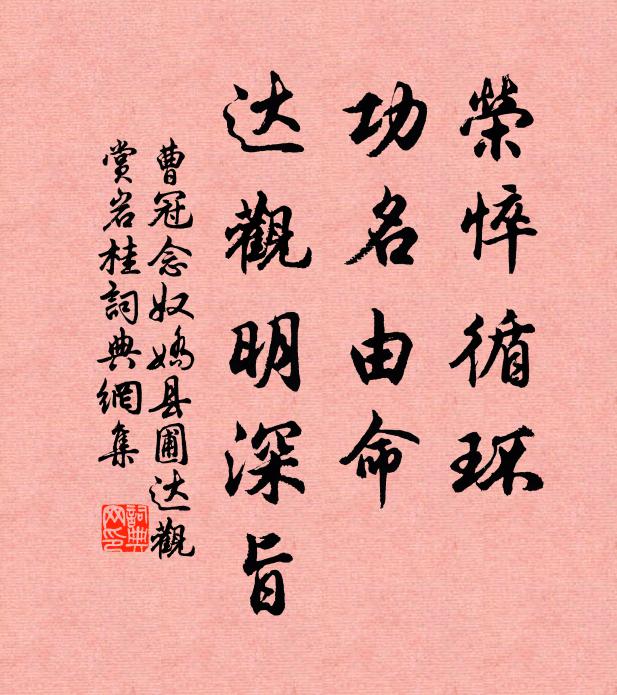 榮悴循环
功名由命
达觀明深旨
曹冠念奴嬌县圃达觀
賞岩桂詞典網集
詞典
网印